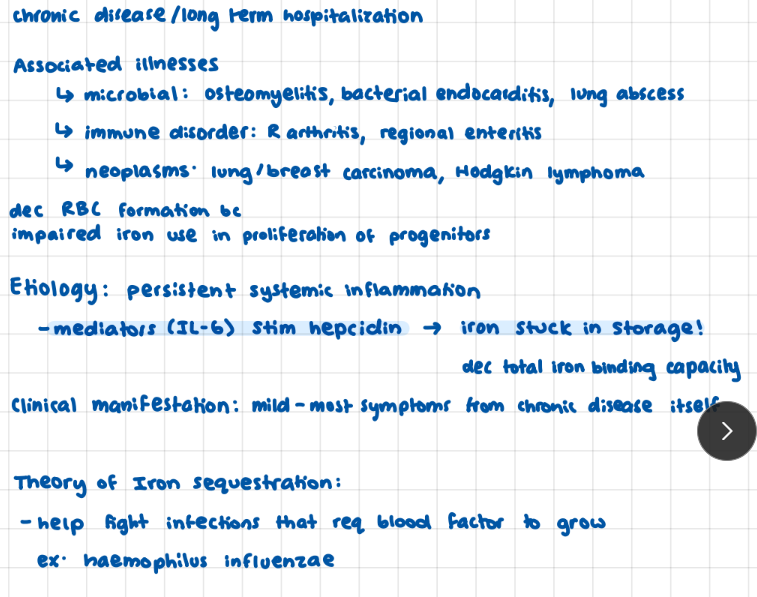 chronic disease/long term hospitalization
Associated illnesses
↳ microbial: osteomyelitis, bacterial endocarditis, lung abscess
↳ immune disorder: R arthritis, regional enteritis
↳ neoplasms: lung/breast carcinoma, Hodgkin lymphoma
dec RBC formation bc
impaired iron use in proliferation of progenitors
Etiology: persistent systemic inflammation
- mediators (IL-6) stim hepcidin → iron stuck in storage!
dec total iron binding capacity
Clinical manifestation: mild - most symptoms from chronic disease itself
Theory of Iron sequestration:
- help fight infections that req blood factor to grow
ex: haemophilus influenzae